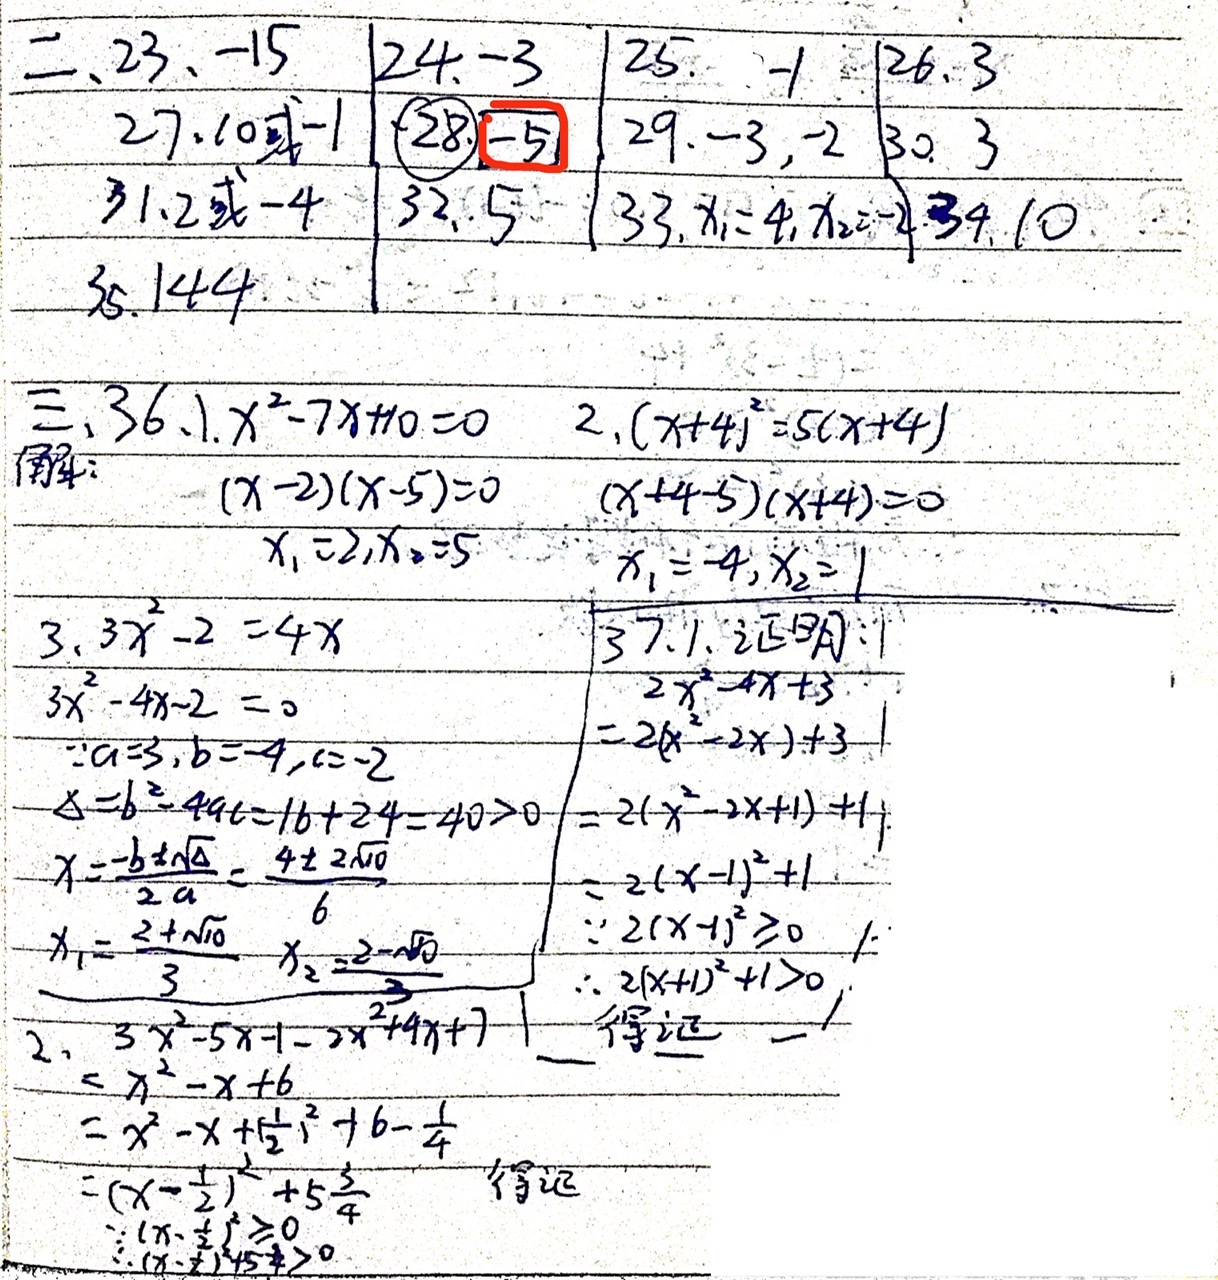 二、23、-15 24. -3 25. -1 26. 3
27. 10或-1 28. -5 29. -3, -2 30. 3
31. 2或-4 32. 5 33. x₁=4, x₂=-2 34. 10
35. 144
三、36、1. x²-7x+10=0 2. (x+4)²=5(x+4)
解:
(x-2)(x-5)=0 (x+4-5)(x+4)=0
x₁=2, x₂=5 x₁=-4, x₂=1
3. 3x²-2=4x
3x²-4x-2=0
∵a=3, b=-4, c=-2
Δ=b²-4ac=16+24=40>0
x=(-b±√Δ)/2a=(4±2√10)/6
x₁=(2+√10)/3 x₂=(2-√10)/3
37. 1. 证明:
2x²-4x+3
=2(x²-2x)+3
=2(x²-2x+1)+1
=2(x-1)²+1
∵2(x-1)²≥0
∴2(x+1)²+1>0
得证
2. 3x²-5x-1-2x²+4x+7
=x²-x+6
=x²-x+(1/2)²+6-1/4
=(x-1/2)²+5 3/4 得证
∵(x-1/2)²≥0
∴(x-1/2)²+5 3/4>0